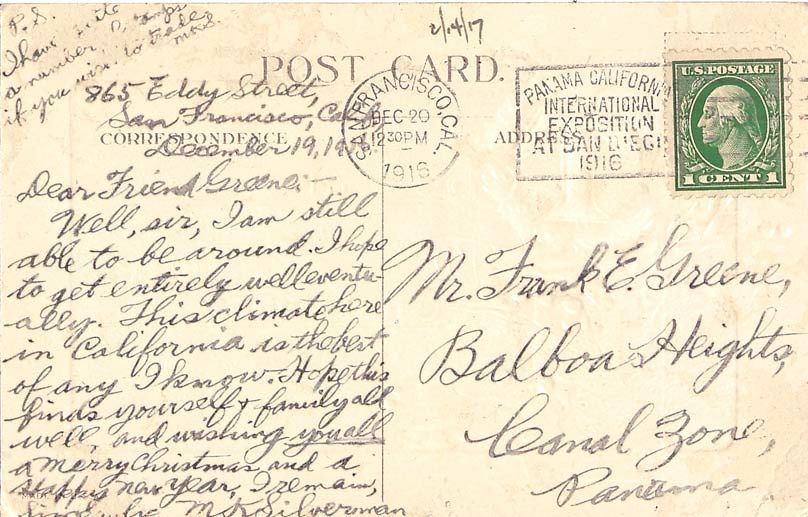 P.S.
I have quite
a number stamps
if you wish to trade
more.
2/14/17
POST CARD.
865 Eddy Street,
San Francisco, Cal.
CORRESPONDENCE
December 19, 19
Dear Friend Greene:-
Well, sir, I am still
able to be around. I hope
to get entirely well eventu-
ally. This climate here
in California is the best
of any I know. Hope this
finds yourself & family all
well, and wishing you all
a merry Christmas and a
Happy new year, I remain,
Silverman
SAN FRANCISCO, CAL.
DEC 20
12 30 PM
1916
PANAMA CALIFORNIA
INTERNATIONAL
EXPOSITION
AT SAN DIEGO
1916
U.S. POSTAGE
1 CENT 1
ADDRESS
Mr. Frank E. Greene,
Balboa Heights,
Canal Zone,
Panama